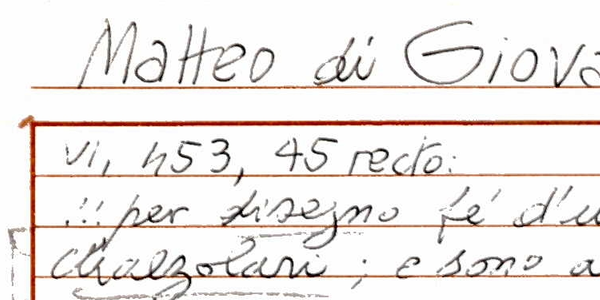 Matteo di Giova
vi, 453, 45 recto:
!!! per disegno fé d'u
chalzolari; e sono a